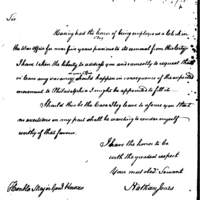 Sir
Having had the honor of being employed as a Clerk in
the War Office for near five years previous to its removal from this City
I have taken the liberty to address you and earnestly to request that
in case any vacancy should happen in consequence of the expected
movement to Philadelphia I might be appointed to fill it
Should this be the Case they have to assure you that
no exertions on my part shall be wanting to render myself
worthy of that favour.
I have the honor to be
with the greatest respect
Your most obed Servant
Nathan Jones
Honble Major Genl Knox